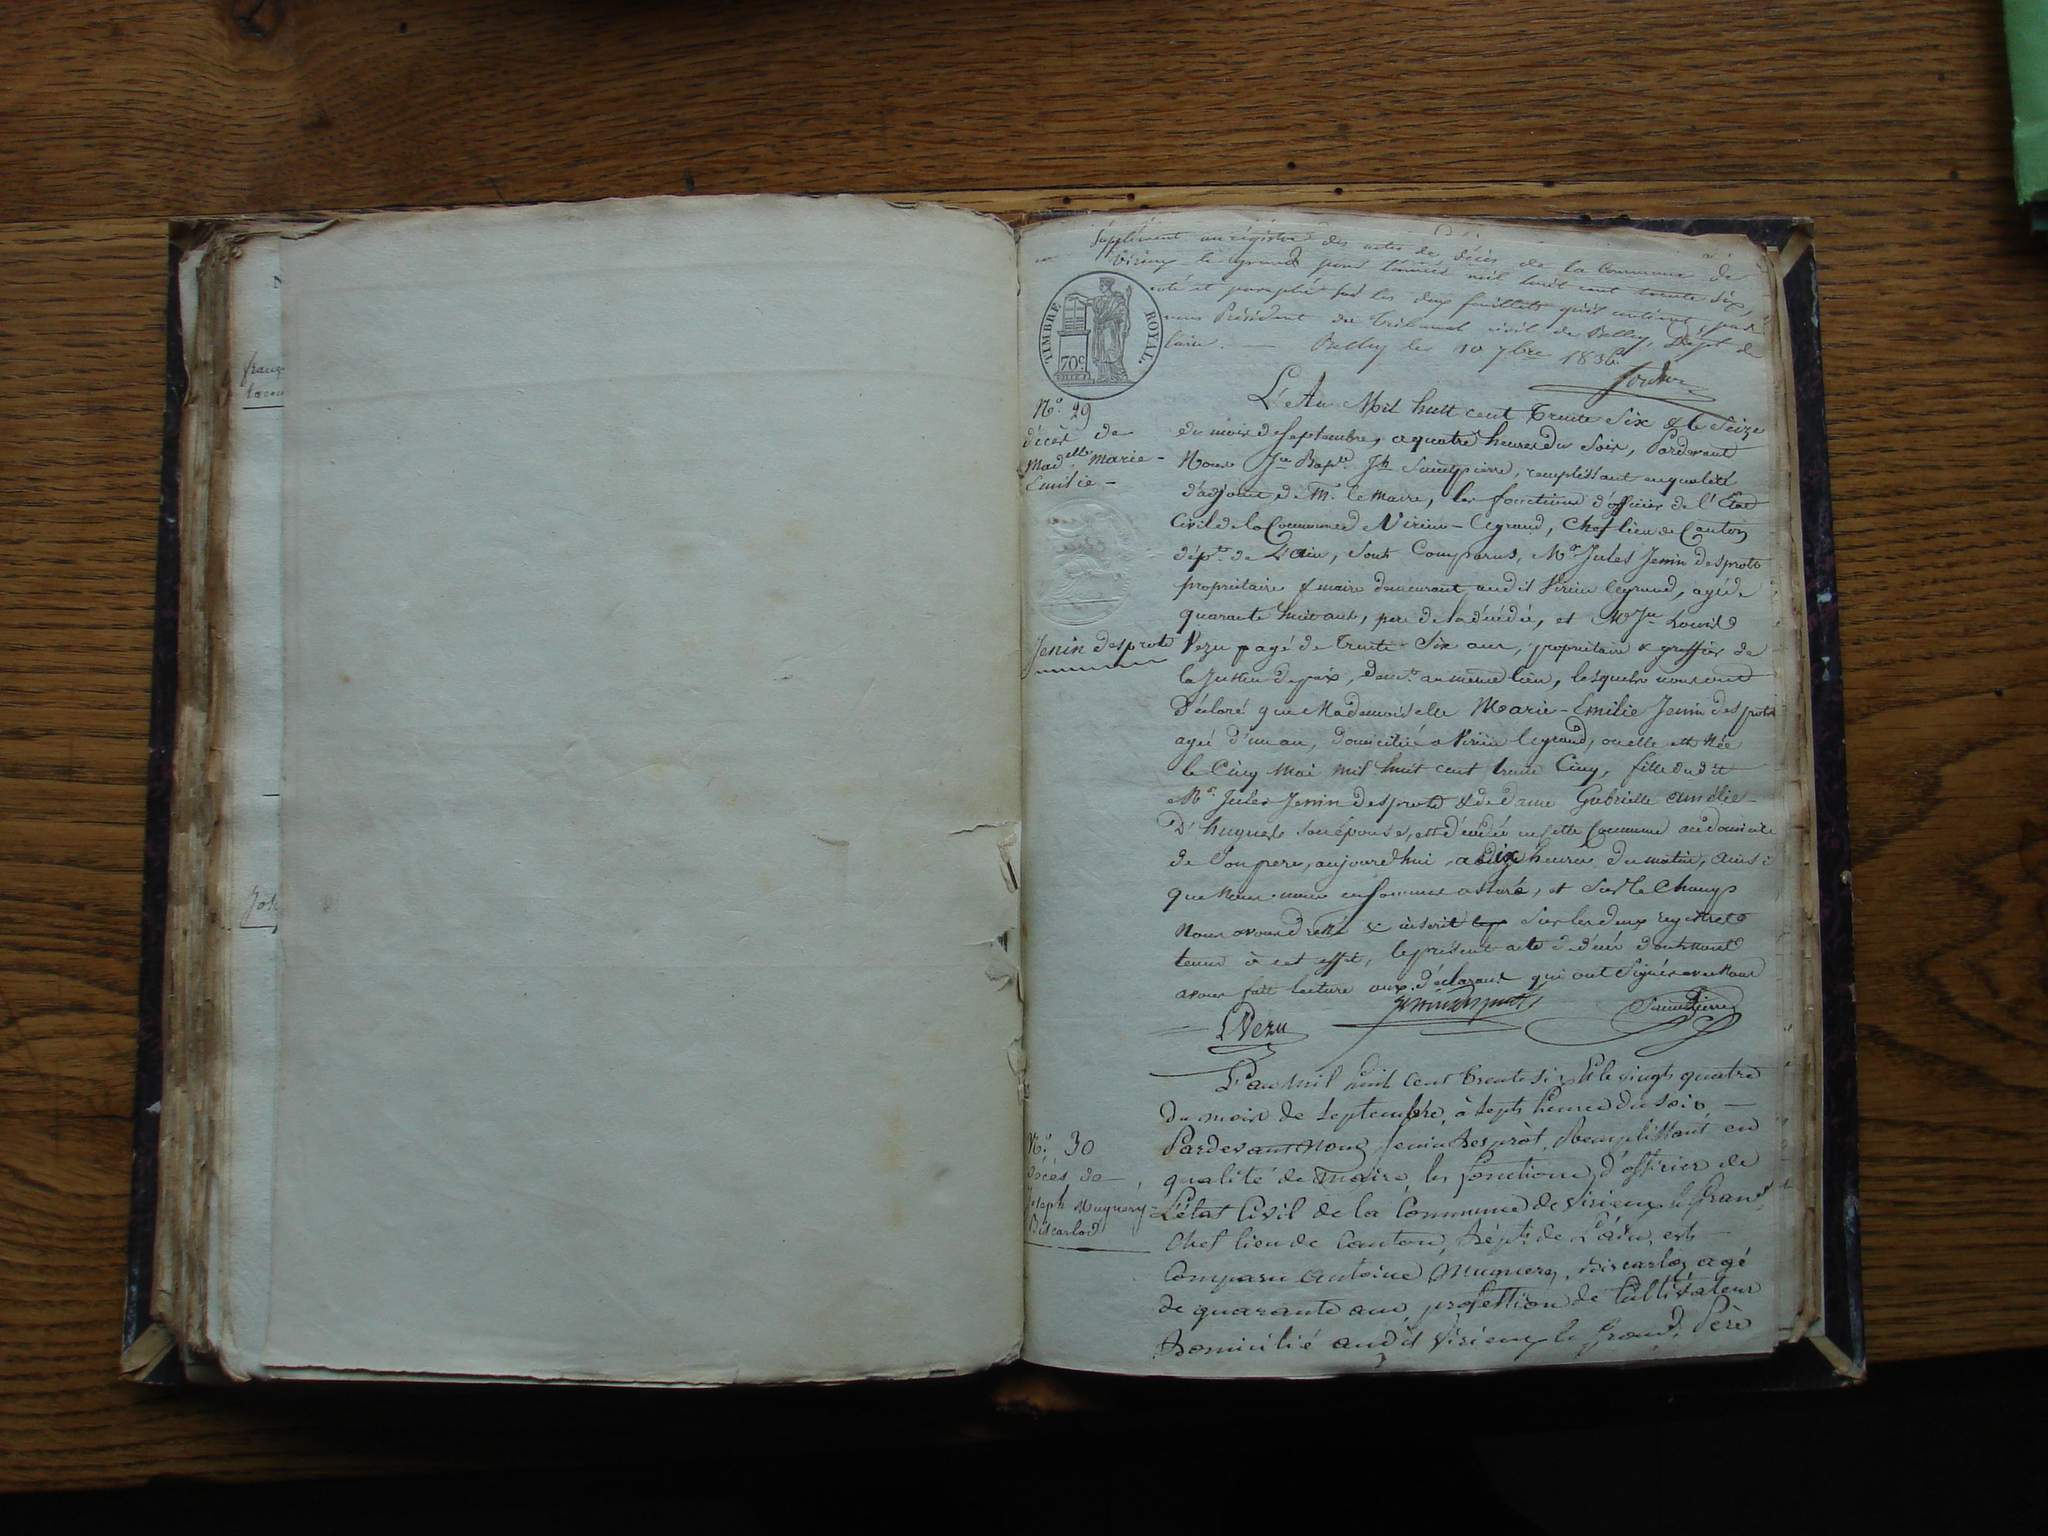 Supplément au régistre des actes de décès de la Commune de
Virieu le grand pour l'année mil huit cent trente six,
coté et paraphé sur les deux feuillets qu'il contient, par
nous Président du Tribunal civil de Belley, Dépt de
l'ain. — Belley le 10 7bre 1836
TIMBRE ROYAL
70c
N
franç
Jos
N.° 29
décès de
Madelle Marie-
Emilie-
Jenin desprots
L'An Mil huit cent Trente Six & le Seize
du mois de septembre, a quatre heures du Soir, Pardevant
Nous Jn Bapte Jh Saintpierre, remplissant en qualité
d'adjoint de Mr. le maire, les fonctions d'officier de l'Etat
Civil de la Commune de Virieu-legrand, Chef lieu de Canton
dépt. de L'ain, Sont Comparus, Mr Jules Jenin desprots
propriétaire & maire demeurant audit Virieu legrand, agé de
quarante huit ans, pere de la décédée, et Mr Jn Louis
Vezu agé de trente Six ans, propriétaire & greffier de
la Justice de paix, demt. au même lieu, lesquels nous ont
Déclaré que Mademoiselle Marie-Emilie Jenin desprots
agée d'un an, domiciliée a Virieu legrand, ou elle est Née
le Cinq Mai mil huit cent trente Cinq, fille dudit
Mr. Jules Jenin desprots & de dame Gabrielle amélie
D'hugues son épouse, est décédée en cette Commune au domicile
de Son pere, aujourd'hui, a dix heures du matin, ainsi
que Nous nous en sommes assuré, et Sur le Champ
Nous avons dressé & inscrit Sur les deux registres
tenus à cet effet, le présent acte de décès dont nous
avons fait lecture aux déclarans qui ont Signés avec Nous
L Vezu
Jenin desprots
Saintpierre
N.° 30
Décès de
Joseph Mugnery-
Discarlod
L'an mil huit cent trente six & le vingt quatre
du mois de septembre, à sept heures du soir, —
Pardevant nous Jenin desprots, Remplissant en
qualité de maire les fonctions d'officier de
L'état Civil de la Commune de Virieu le Grand
chef lieu de Canton, Dépt. de L'ain, est
Comparu Antoine Mugnery, Discarlod agé
de quarante ans, profession de Cultivateur
Domicilié audit Virieu le Grand, Père